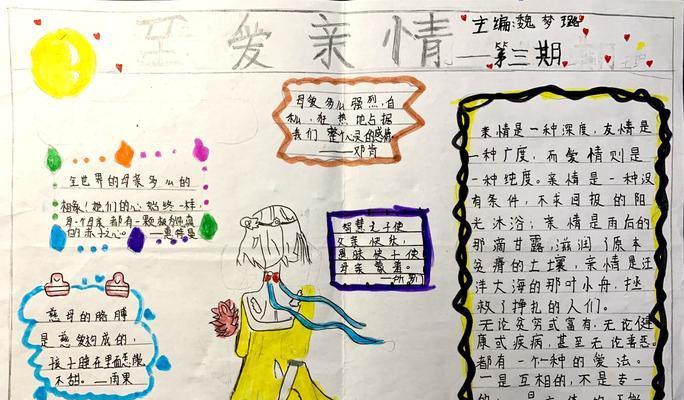 至爱亲情
主编:魏梦璐
——第三期
母爱多么强烈,自
私,狂热地占据
我们整个心灵的感情。
——邓肯
全世界的母亲多么的
相象!她们的心始终一样,
每个母亲都有一颗极为纯真
的赤子之心。——惠特曼
智慧之子使
父亲快乐,
愚昧之子使
母亲蒙羞。
慈母的胳膊
是慈爱构成的,
孩子睡在里面怎能
不甜。——雨果
亲情是一种深度,友情是
一种广度,而爱情则是
一种纯度。亲情是一种没
有条件,不求回报的阳
光沐浴;亲情是雨后的
那滴甘露,滋润了原本
贫瘠的土壤,亲情是汪
洋大海的那叶小舟,拯
救了挣扎的人们。
无论贫穷或富有,无论健
康或疾病,甚至无论善恶。
都有一个一种的爱法。
一是互相的,不是专一